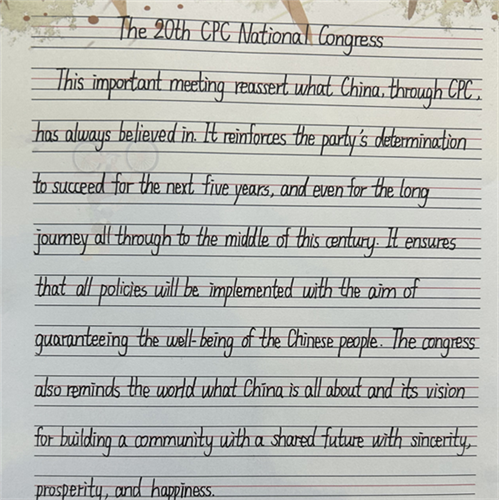 The 20th CPC National Congress
This important meeting reassert what China, through CPC,
has always believed in. It reinforces the party's determination
to succeed for the next five years, and even for the long
journey all through to the middle of this century. It ensures
that all policies will be implemented with the aim of
guaranteeing the well-being of the Chinese people. The congress
also reminds the world what China is all about and its vision
for building a community with a shared future with sincerity,
prosperity, and happiness.